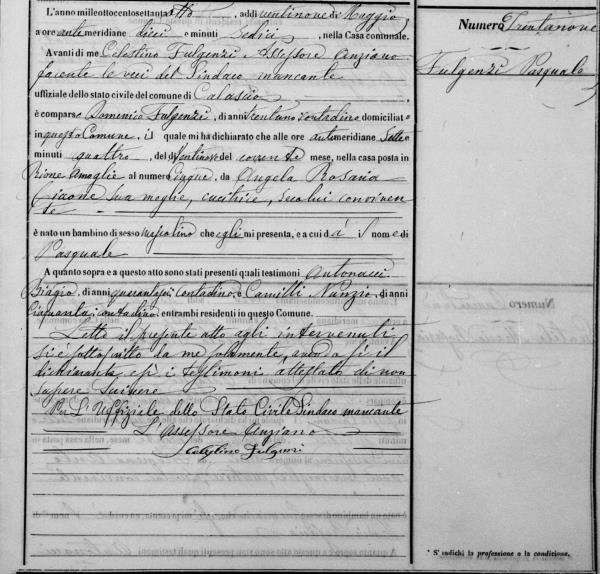 L'anno milleottocentosettantaotto, addì ventinove di Maggio,
a ore antemeridiane dieci e minuti sedici, nella Casa comunale.
Avanti di me Celestino Fulgenzi Assessore Anziano
facente le veci del Sindaco mancante
uffiziale dello stato civile del comune di Calascio
è comparso Domenico Fulgenzi, di anni trentuno contadino domiciliato
in questo Comune, il quale mi ha dichiarato che alle ore antemeridiane Sette
minuti quattro, del dì Ventinove del corrente mese, nella casa posta in
Rione Amaglie al numero Cinque, da Angela Rosaria
Cicone sua moglie, cucitrice, seco lui conviven
te
è nato un bambino di sesso mascolino che egli mi presenta, e a cui dà il nome di
Pasquale
A quanto sopra e a questo atto sono stati presenti quali testimoni Antonacci
Biagio, di anni quarantasei contadino, e Camilli Nunzio, di anni
Cinquanta, contadino entrambi residenti in questo Comune.
Letto il presente atto agli intervenuti
si è sottoscritto da me solamente, avendo sì il
dichiarante e i testimoni attestato di non
sapere scrivere
Per L'Uffiziale dello Stato Civile Sindaco mancante
L'Assessore Anziano
Celestino Fulgenzi
Numero Trentanove
Fulgenzi Pasquale
Numero
* S'indichi la professione o la condizione.